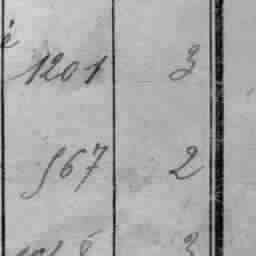 1201 3
567 2